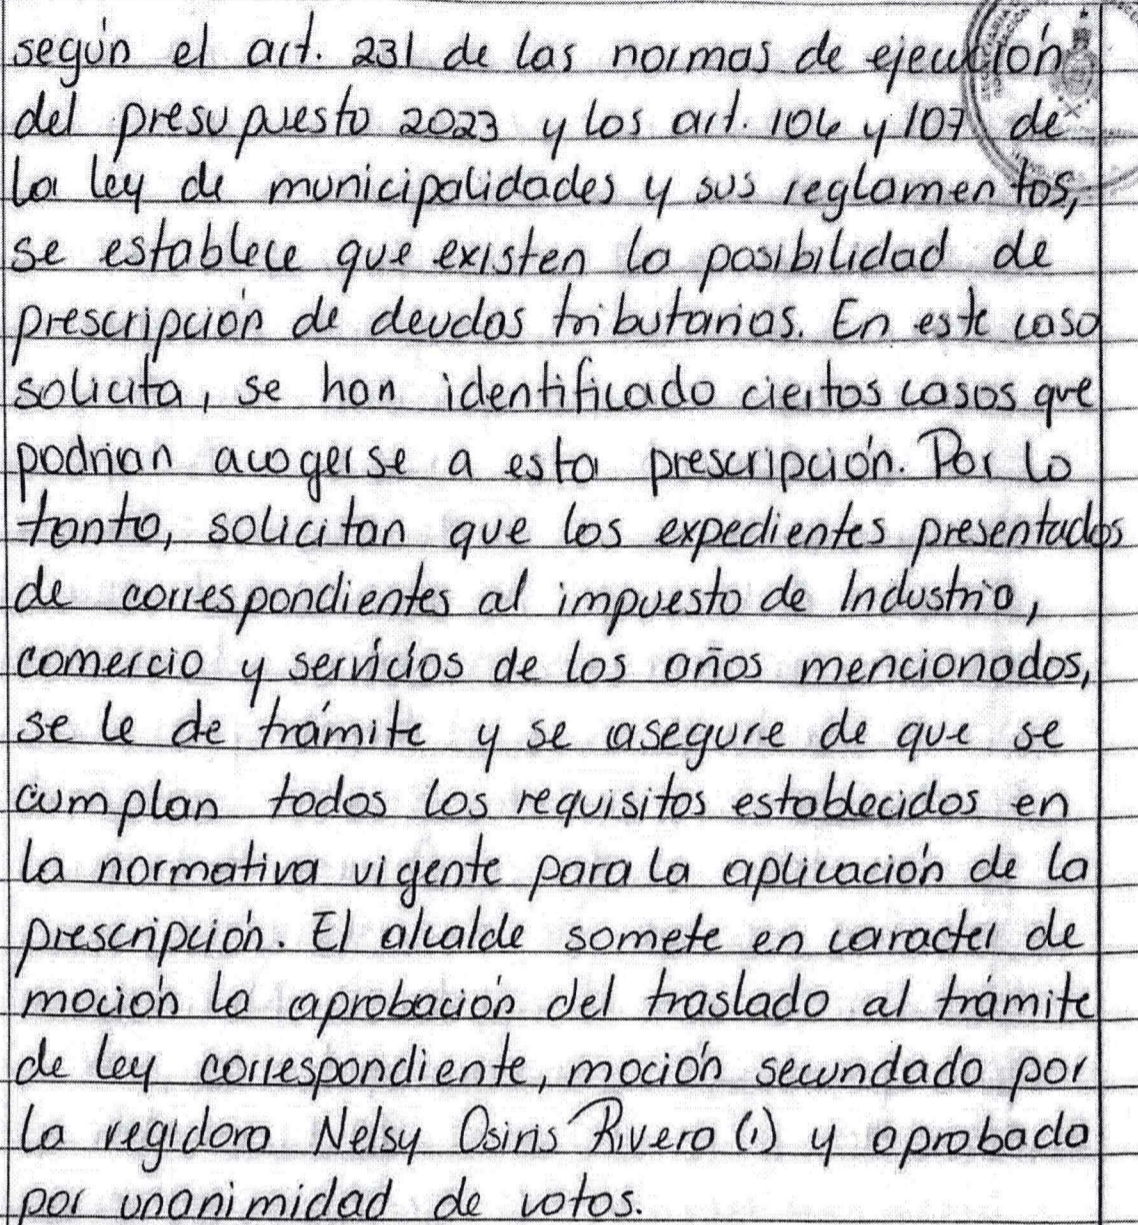 según el art. 231 de las normas de ejecución
del presupuesto 2023 y los art. 106 y 107 de
la ley de municipalidades y sus reglamentos,
se establece que existen la posibilidad de
prescripción de deudas tributarias. En este caso
solicita, se han identificado ciertos casos que
podrian acogerse a esta prescripción. Por lo
tanto, solicitan que los expedientes presentados
de correspondientes al impuesto de Industria,
comercio y servicios de los años mencionados,
se le de trámite y se asegure de que se
cumplan todos los requisitos establecidos en
la normativa vigente para la aplicación de la
prescripción. El alcalde somete en caracter de
moción la aprobación del traslado al trámite
de ley correspondiente, moción secundado por
la regidora Nelsy Osiris Rivera (1) y aprobado
por unanimidad de votos.